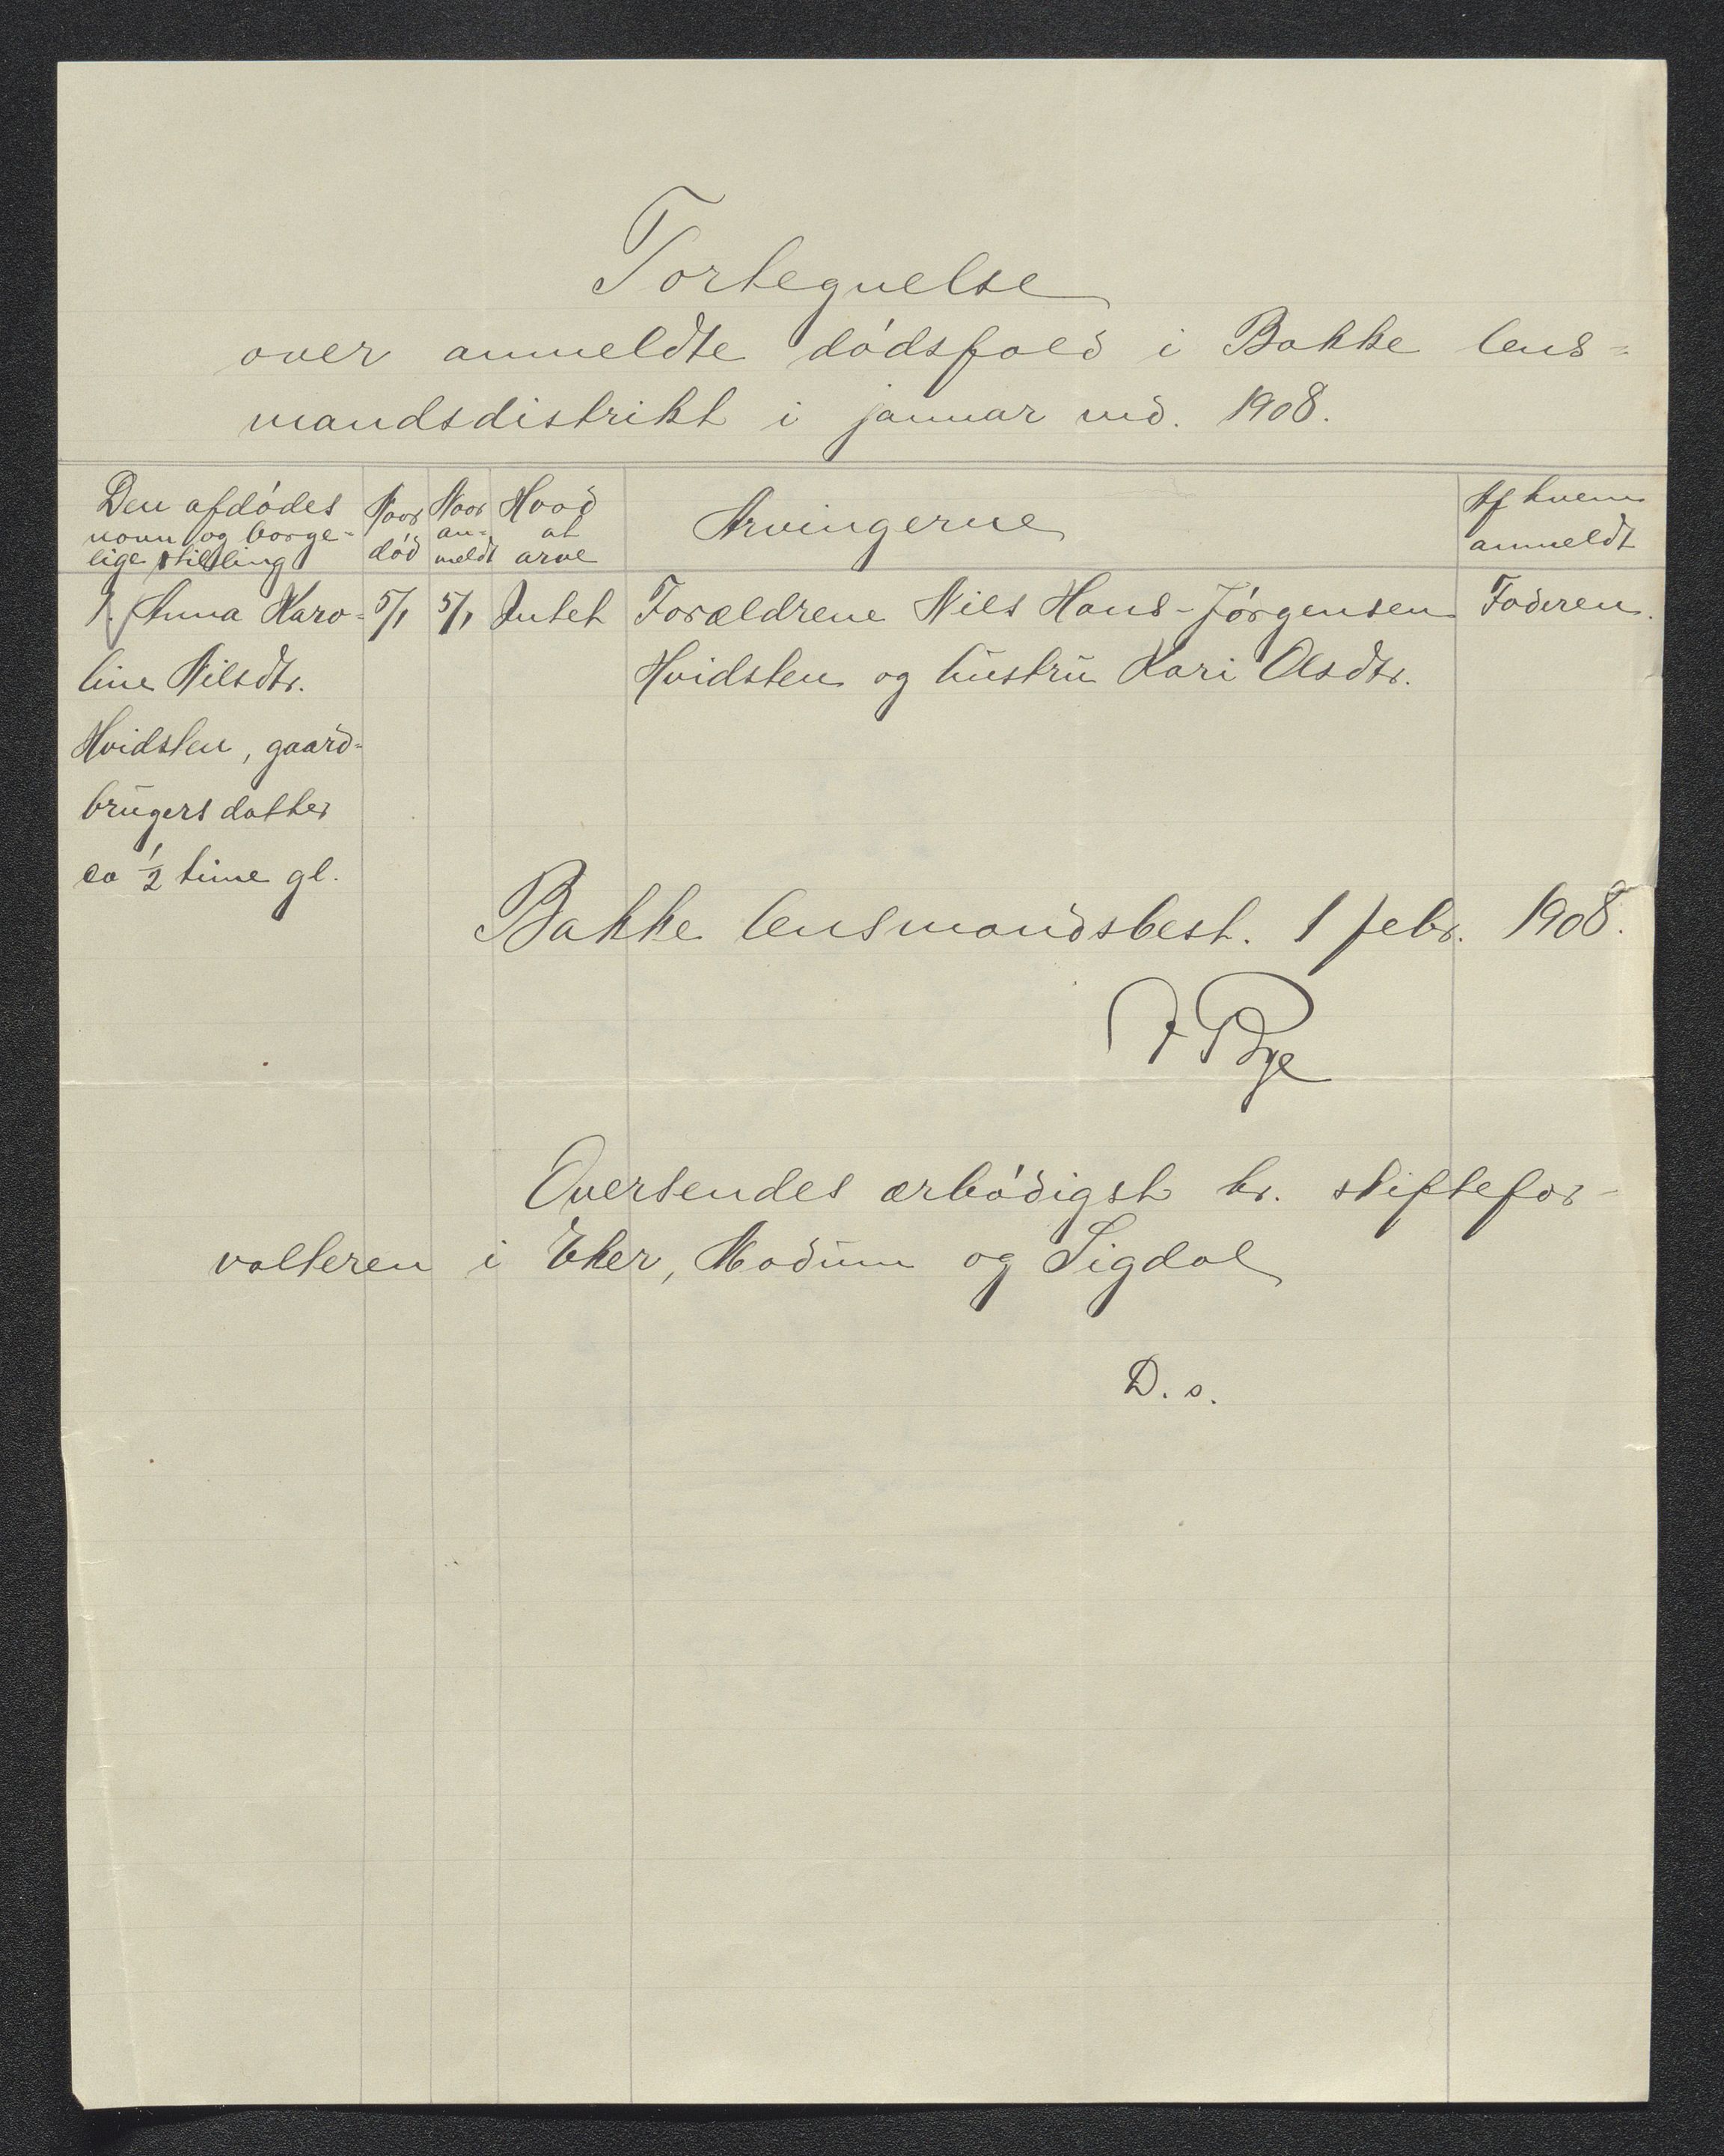 Fortegnelse
over anmeldte dødsfald i Bakke lens=
mandsdistrikt i januar md. 1908.
Den afdødes
navn og borge-
lige stilling
Naar
død
Naar
an-
meldt
Hvad
at
arve
Arvingerne
Af hvem
anmeldt
1. Anna Karo-
line Nilsdtr.
Hvidsten, gaard-
brugers datter
ca ½ time gl.
5/1
5/1
Intet
Forældrene Nils Hans-Jørgensen
Hvidsten og hustru Kari Olsdtr.
Faderen.
Bakke lensmandsbest. 1 febr. 1908.
Bye
Oversendes ærbødigst hr. skiftefor-
valteren i Eker, Modum og Sigdal
D. s.